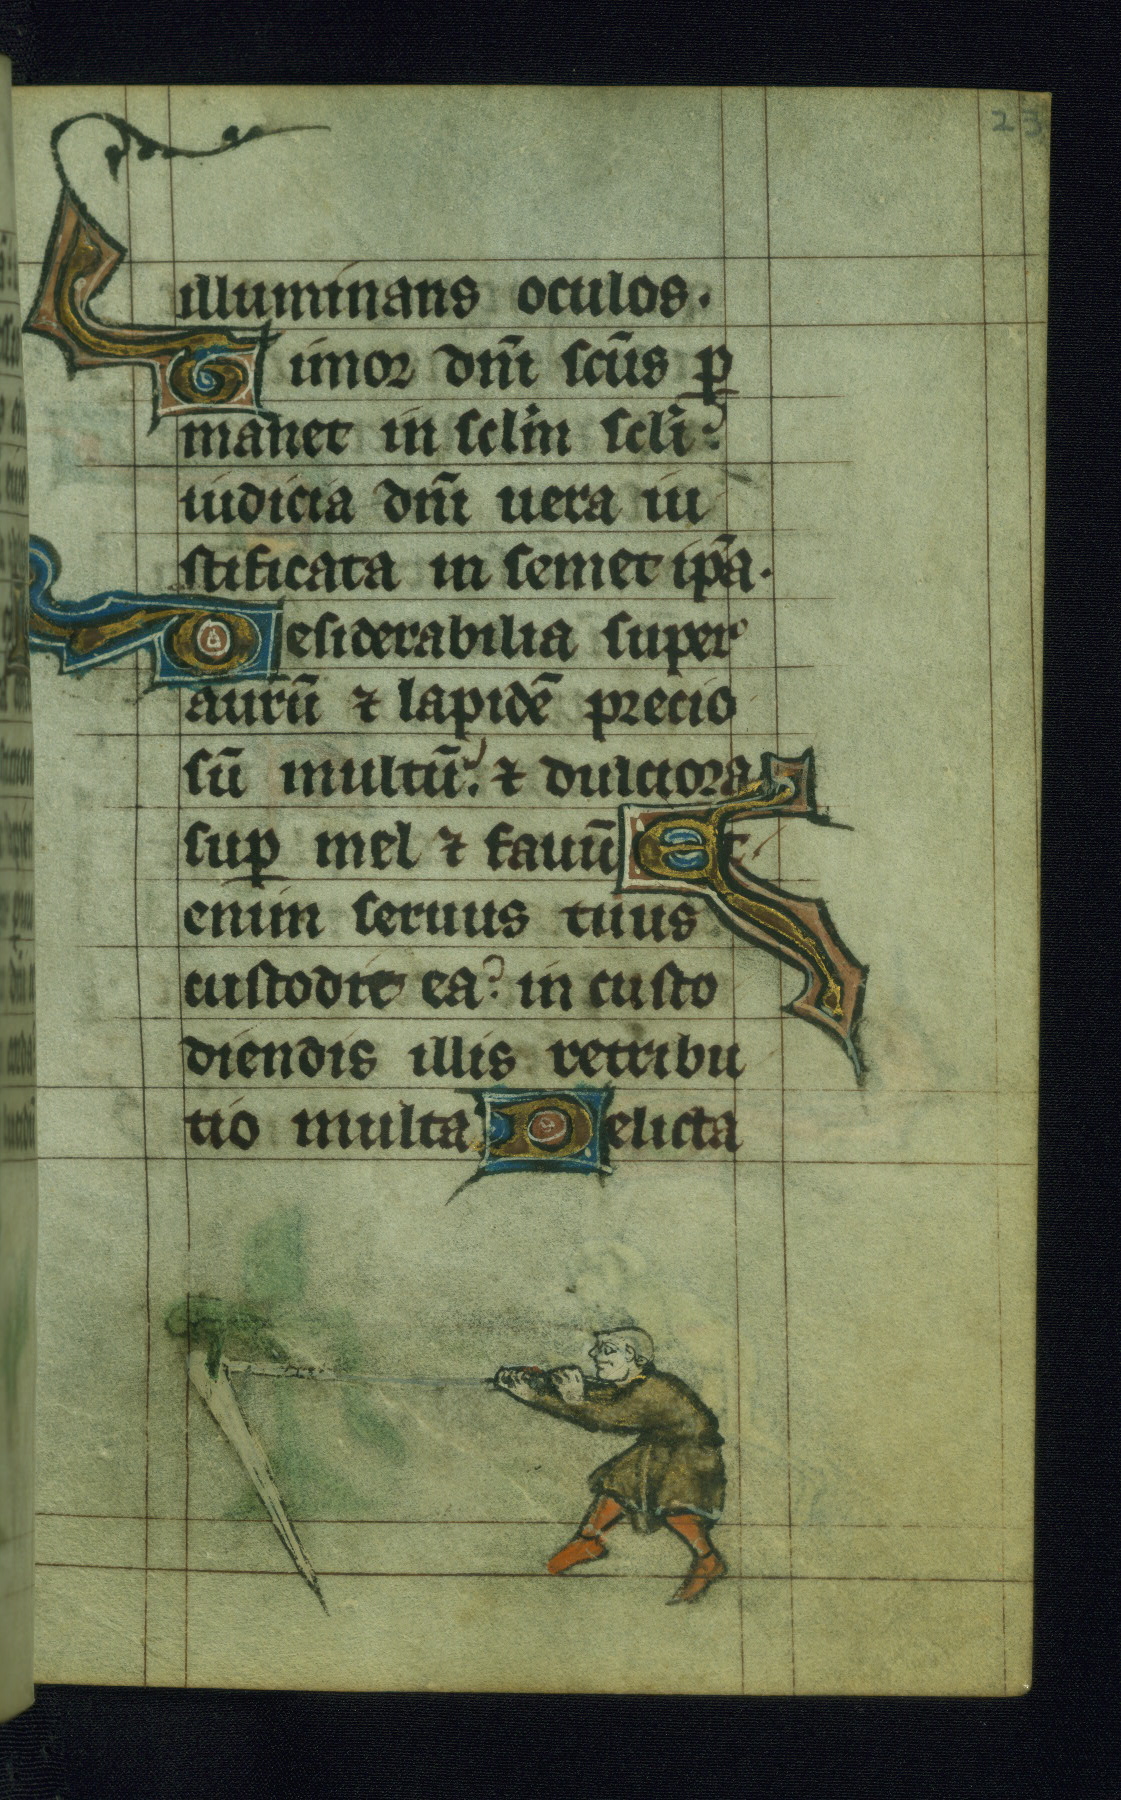 23
illuminans oculos.
Timor dn̄i scūs ꝑ
manet in sclm̄ scli:
iudicia dn̄i uera iu
stificata in semet ip̄a.
Desiderabilia super
aurū ⁊ lapidē precio
sū multū: ⁊ dulciora
suꝑ mel ⁊ fauū Et
enim seruus tuus
custodit ea: in custo
diendis illis retribu
tio multa Delicta